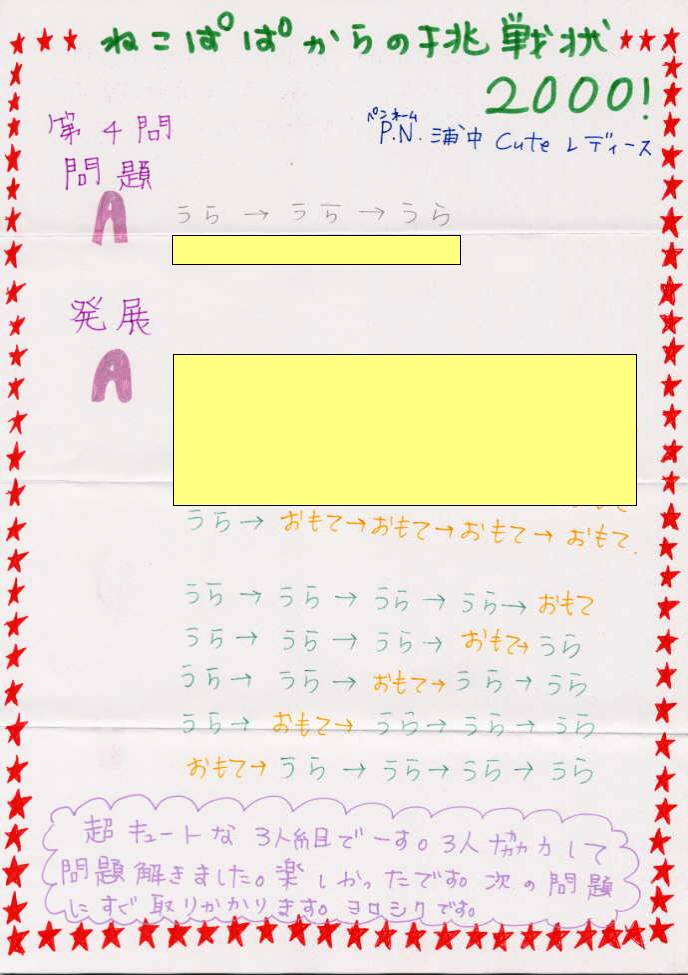 ねこぱぱからの挑戦状
2000!
ペンネーム
P.N. 浦中 Cute レディース
第4問
問題
A うら→うら→うら
発展
A
うら→おもて→おもて→おもて→おもて.
うら→うら→うら→うら→おもて
うら→うら→うら→おもて→うら
うら→うら→おもて→うら→うら
うら→おもて→うら→うら→うら
おもて→うら→うら→うら→うら
超キュートな3人組でーす。3人協力して
問題解きました。楽しかったです。次の問題
にすぐ取りかかります。ヨロシクです。